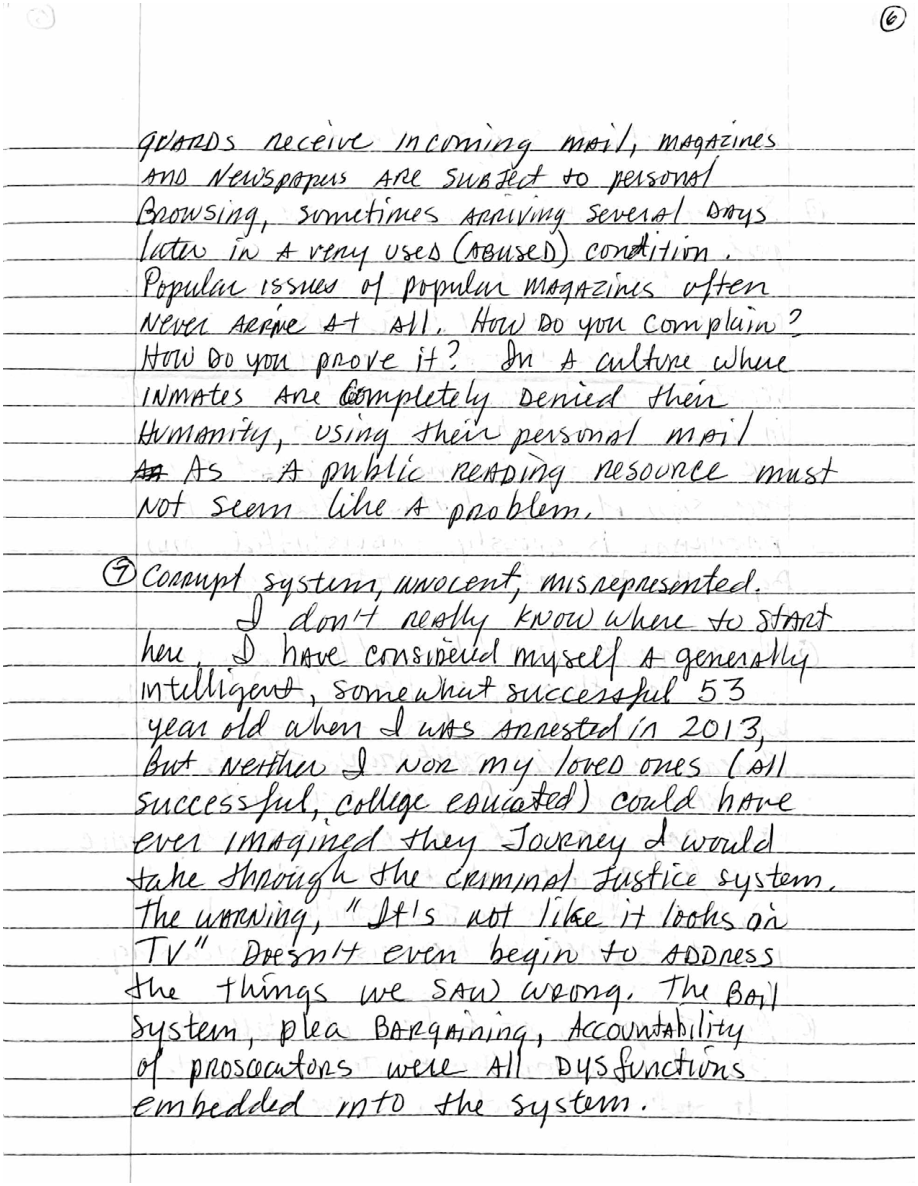 ⑥
guards receive incoming mail, magazines
and Newspapers are subject to personal
Browsing, sometimes arriving several days
later in a very used (abused) condition.
Popular issues of popular magazines often
never arrive at all. How do you complain?
How do you prove it? In a culture where
inmates are completely denied their
Humanity, using their personal mail
As A public reading resource must
not seem like a problem.
⑦ Corrupt system, innocent, misrepresented.
I don't really know where to start
here. I have considered myself a generally
intelligent, somewhat successful 53
year old when I was arrested in 2013,
But neither I nor my loved ones (all
successful, college educated) could have
ever imagined they Journey I would
take through the criminal justice system.
The warning, "It's not like it looks on
TV" Doesn't even begin to address
the things we saw wrong. The Bail
system, plea Bargaining, Accountability
of prosocutors were all Dysfunctions
embedded into the system.